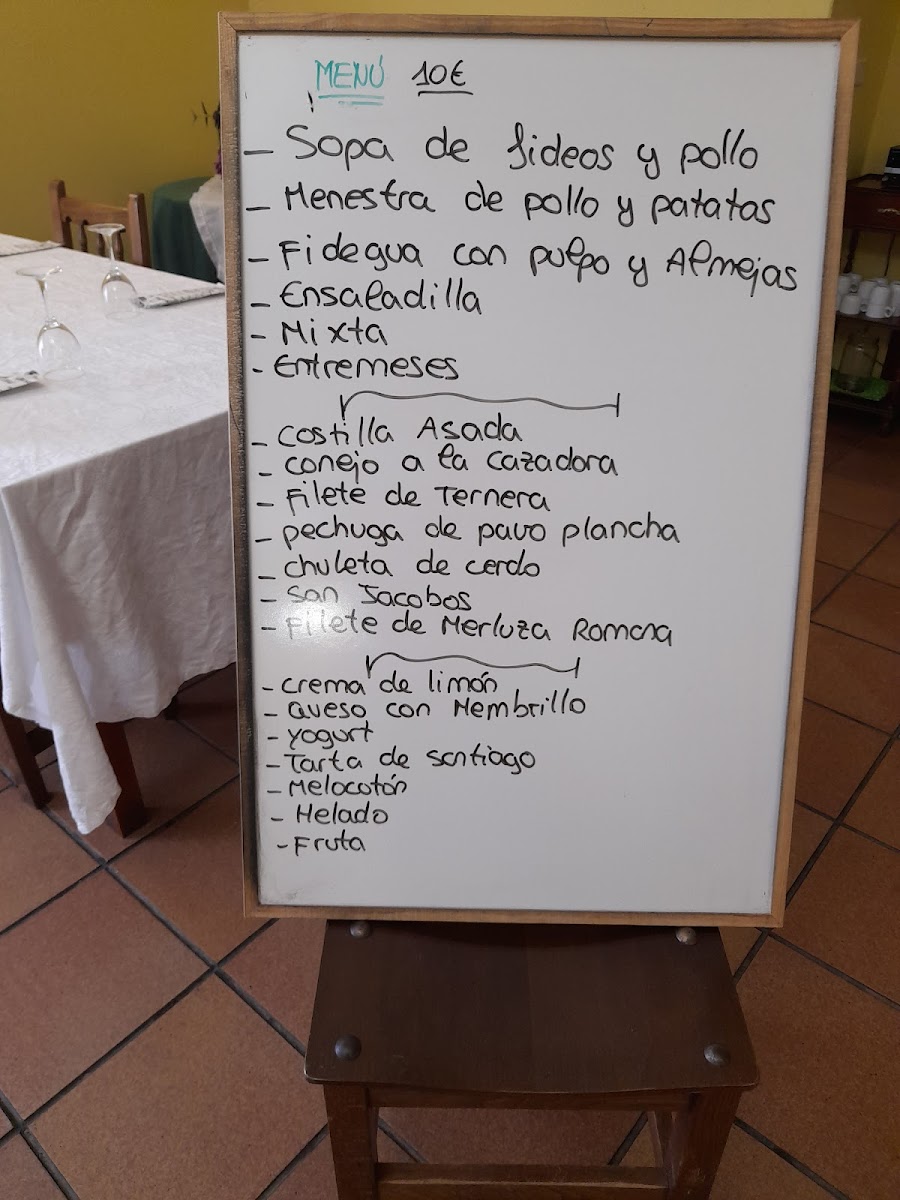 MENÚ 10€
- Sopa de fideos y pollo
- Menestra de pollo y patatas
- Fidegua con pulpo y Almejas
- Ensaladilla
- Mixta
- Entremeses
- Costilla Asada
- conejo a la cazadora
- Filete de Ternera
- pechuga de pavo plancha
- chuleta de cerdo
- San Jacobos
- Filete de Merluza Romana
- crema de limón
- queso con Membrillo
- yogurt
- Tarta de santiago
- Melocotón
- Helado
- Fruta